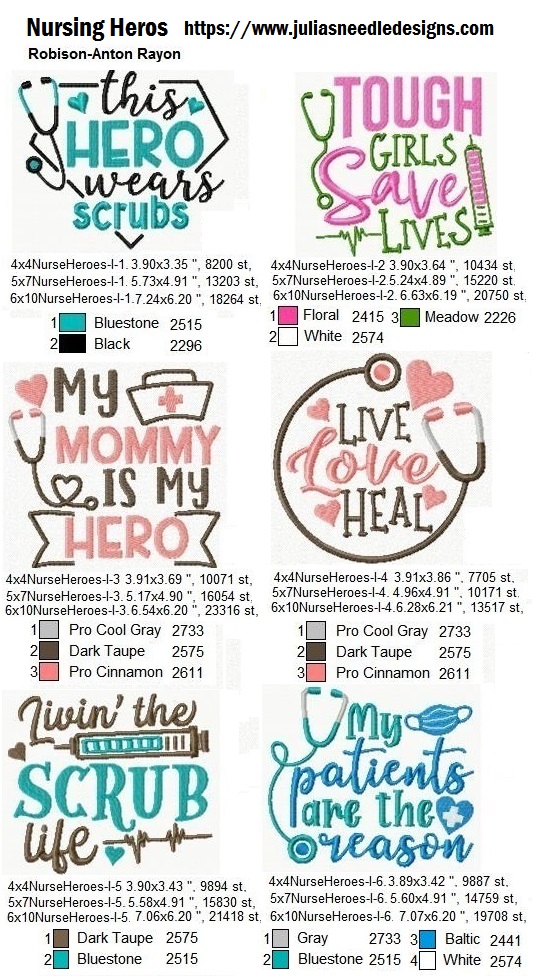 Nursing Heros https://www.juliasneedledesigns.com
Robison-Anton Rayon
this
HERO
wears
scrubs
4x4NurseHeroes-I-1. 3.90x3.35 ", 8200 st,
5x7NurseHeroes-I-1. 5.73x4.91 ", 13203 st,
6x10NurseHeroes-I-1.7.24x6.20 ", 18264 st,
1 Bluestone 2515
2 Black 2296
TOUGH
GIRLS
Save
LIVES
4x4NurseHeroes-I-2 3.90x3.64 ", 10434 st,
5x7NurseHeroes-I-2.5.24x4.89 ", 15220 st,
6x10NurseHeroes-I-2. 6.63x6.19 ", 20750 st,
1 Floral 2415 3 Meadow 2226
2 White 2574
My
MOMMY
IS My
HERO
4x4NurseHeroes-I-3 3.91x3.69 ", 10071 st,
5x7NurseHeroes-I-3.5.17x4.90 ", 16054 st,
6x10NurseHeroes-I-3.6.54x6.20 ", 23316 st,
1 Pro Cool Gray 2733
2 Dark Taupe 2575
3 Pro Cinnamon 2611
LIVE
Love
HEAL
4x4NurseHeroes-I-4 3.91x3.86 ", 7705 st,
5x7NurseHeroes-I-4. 4.96x4.91 ", 10171 st,
6x10NurseHeroes-I-4.6.28x6.21 ", 13517 st,
1 Pro Cool Gray 2733
2 Dark Taupe 2575
3 Pro Cinnamon 2611
Livin' the
SCRUB
life
4x4NurseHeroes-I-5 3.90x3.43 ", 9894 st,
5x7NurseHeroes-I-5. 5.58x4.91 ", 15830 st,
6x10NurseHeroes-I-5. 7.06x6.20 ", 21418 st,
1 Dark Taupe 2575
2 Bluestone 2515
My
patients
are the
reason
4x4NurseHeroes-I-6. 3.89x3.42 ", 9887 st,
5x7NurseHeroes-I-6. 5.60x4.91 ", 14759 st,
6x10NurseHeroes-I-6. 7.07x6.20 ", 19708 st,
1 Gray 2733 3 Baltic 2441
2 Bluestone 2515 4 White 2574